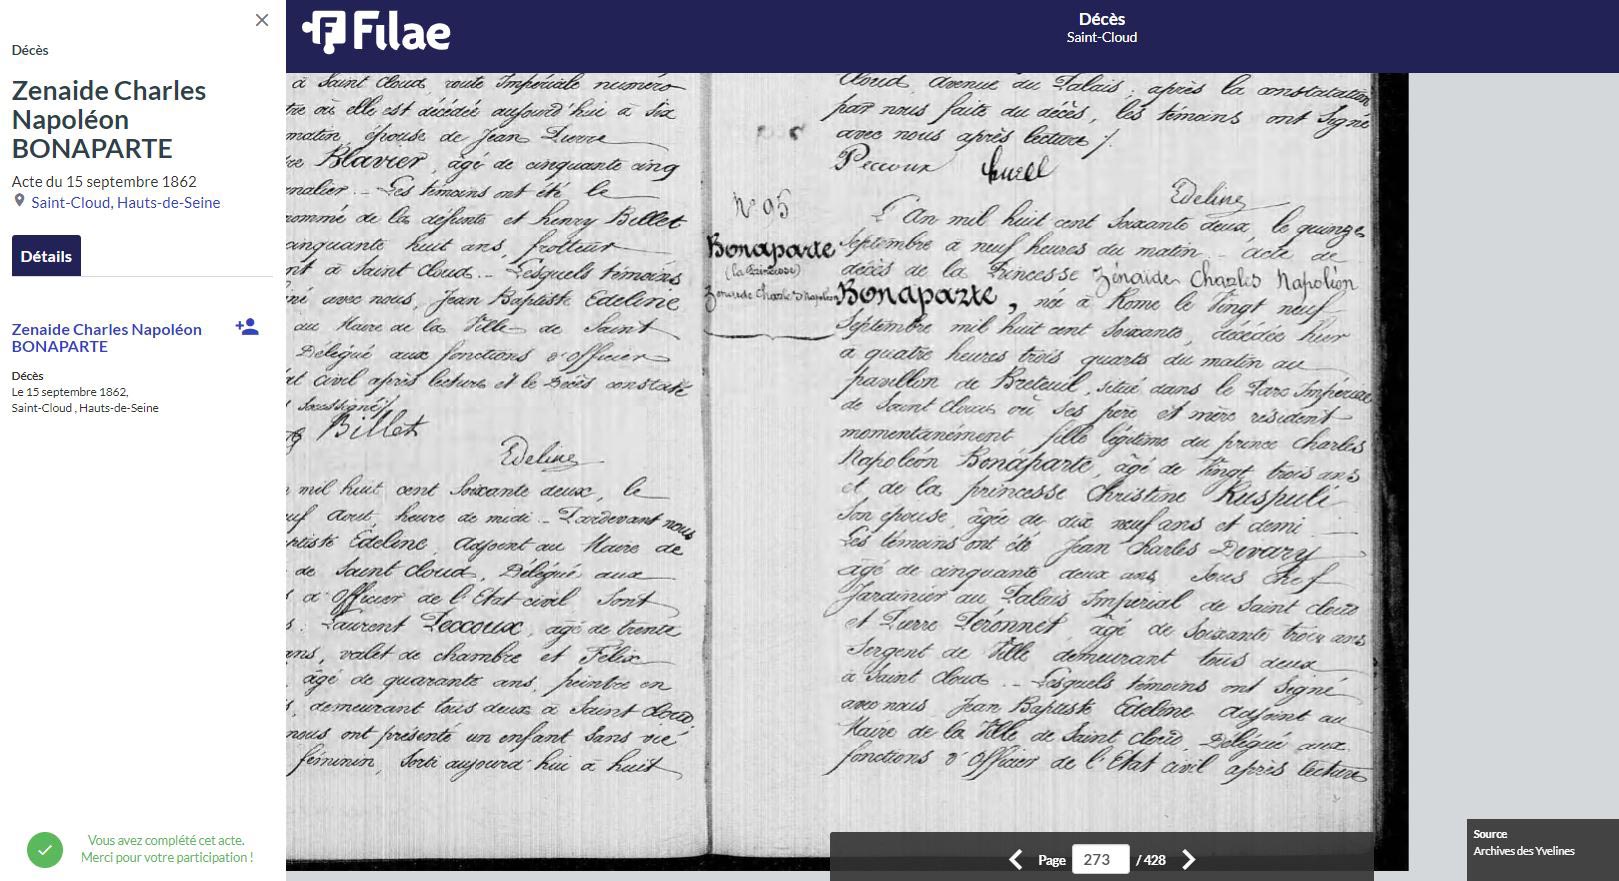 Décès
Zenaide Charles
Napoléon
BONAPARTE
Acte du 15 septembre 1862
Saint-Cloud, Hauts-de-Seine
Détails
Zenaide Charles Napoléon
BONAPARTE
Décès
Le 15 septembre 1862,
Saint-Cloud , Hauts-de-Seine
Vous avez complété cet acte.
Merci pour votre participation !
Filae
Décès
Saint-Cloud
à Saint Cloud route Impériale numéro
tre où elle est décédée aujourd'hui à six
matin, épouse de Jean Pierre
Blavier, âgé de cinquante cinq
Les témoins ont été le
nommé de la défunte et henry Billet
cinquante huit ans, frotteur
nt à Saint Cloud. _ Lesquels témoins
né avec nous, Jean Baptiste Edeline
au Maire de la Ville de Saint
Délégué aux fonctions d'officier
at civil après lecture et le Décès constaté
soussigné/.
Billet
Edeline
mil huit cent soixante deux, le
uf Aout, heure de midi _ Pardevant nous
ptiste Edeline, Adjoint au Maire de
de Saint Cloud, Délégué aux
s d'officier de l'Etat civil sont
s. Laurent Peccoux, âgé de trente
ans, valet de chambre et Félix
âgé de quarante ans, peintre en
s, demeurant tous deux à Saint Cloud,
nous ont présenté un enfant sans vie
féminin, sorti aujourd'hui à huit
N° 95
Bonaparte
(la Princesse)
Zenaide Charles Napoléon
Cloud avenue du Palais; après la constatation
par nous faite du décès, les témoins ont signé
avec nous après lecture /.
Peccoux
Edeline
L'An mil huit cent soixante deux, le quinze
Septembre à neuf heures du matin _ acte de
décès de la Princesse Zénaide Charles Napoléon
Bonaparte, née à Rome le Vingt neuf
Septembre mil huit cent soixante, décédée hier
à quatre heures trois quarts du matin au
pavillon de Breteuil, situé dans le Parc Impérial
de Saint Cloud où ses père et mère résident
momentanément fille légitime du prince Charles
Napoléon Bonaparte, âgé de Vingt trois ans
et de la princesse Christine Ruspuli
son épouse, âgée de dix neuf ans et demi
Les témoins ont été Jean Charles Divary
âgé de cinquante deux ans, Sous chef
Jardinier au Palais Impérial de Saint cloud
et Pierre Péronnet, âgé de soixante trois ans
Sergent de Ville demeurant tous deux
à Saint Cloud _ Lesquels témoins ont signé
avec nous Jean Baptiste Edeline Adjoint au
Maire de la Ville de Saint Cloud, Délégué aux
fonctions d'officier de l'Etat civil après lecture
Page 273 / 428
Source
Archives des Yvelines